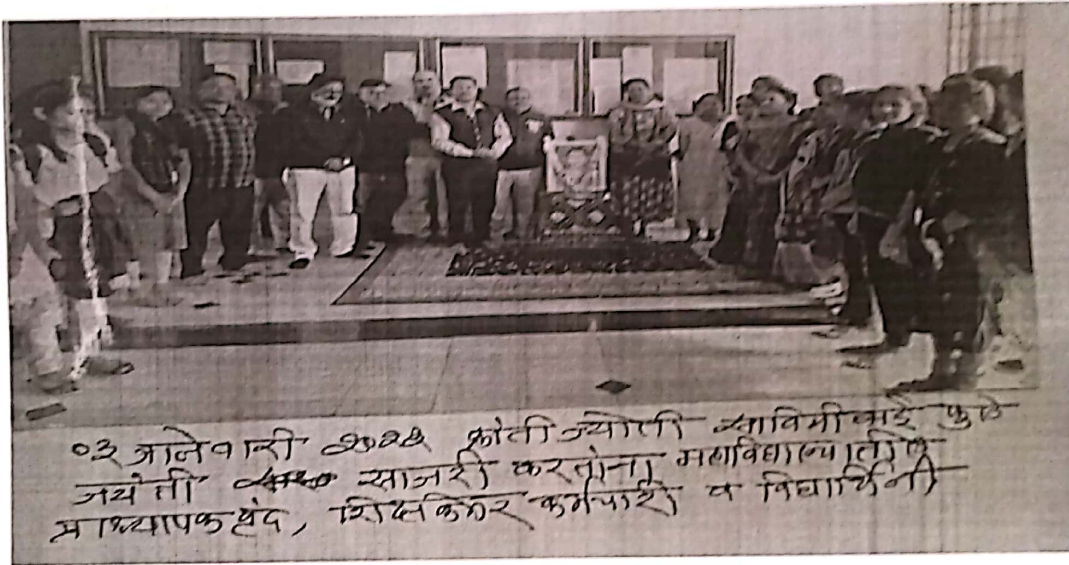 ०३ जानेवारी २०२२ क्रांती ज्योती सावित्रीबाई फुले
जयंती साजरी करतांना महाविद्यालयातील
प्राध्यापक वृंद, शिक्षकेतर कर्मचारी व विद्यार्थिनी